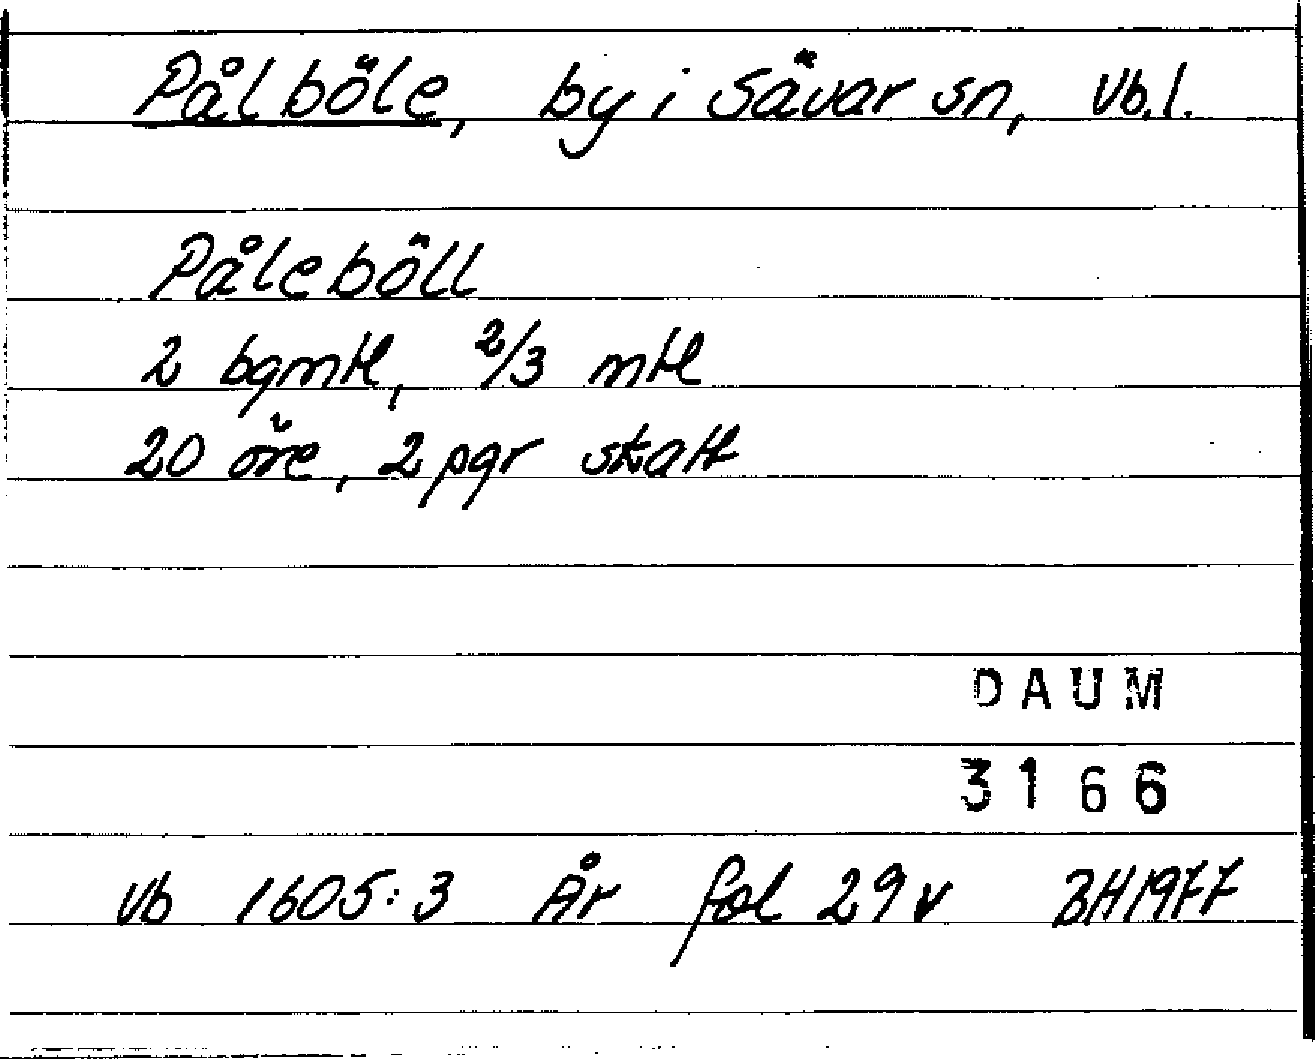 Pålböle, by i Sävar sn, Vb.l.
Påleböll
2 bgmtl, 2/3 mtl
20 öre, 2 pgr skatt
DAUM
3166
Vb 1605:3 År fol 29v BH1977